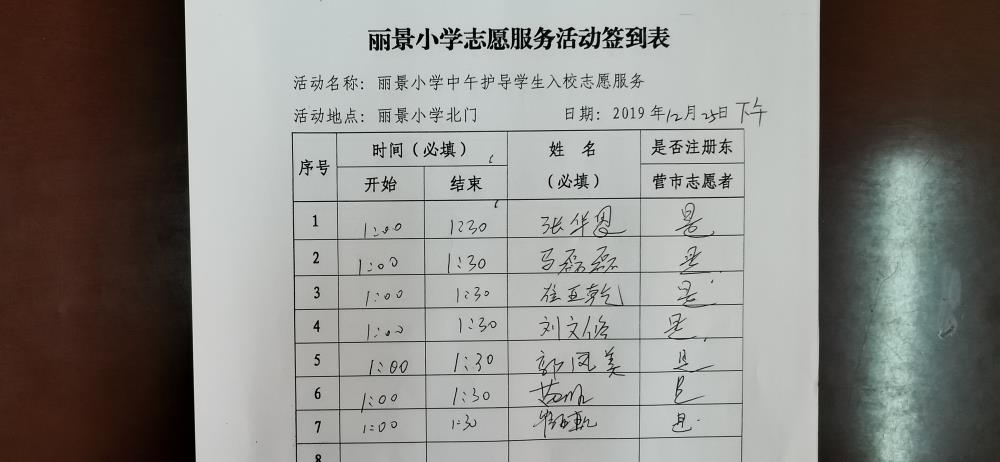 丽景小学志愿服务活动签到表
活动名称：丽景小学中午护导学生入校志愿服务
活动地点：丽景小学北门 日期：2019年12月25日下午
序号 时间（必填） 姓名（必填） 是否注册东营市志愿者
开始 结束
1 1:00 1:30 张华恩 是
2 1:00 1:30 马磊磊 是
3 1:00 1:30 是
4 1:00 1:30 刘文俊 是
5 1:00 1:30 郭凤美 是
6 1:00 1:30 是
7 1:00 1:30 是
8